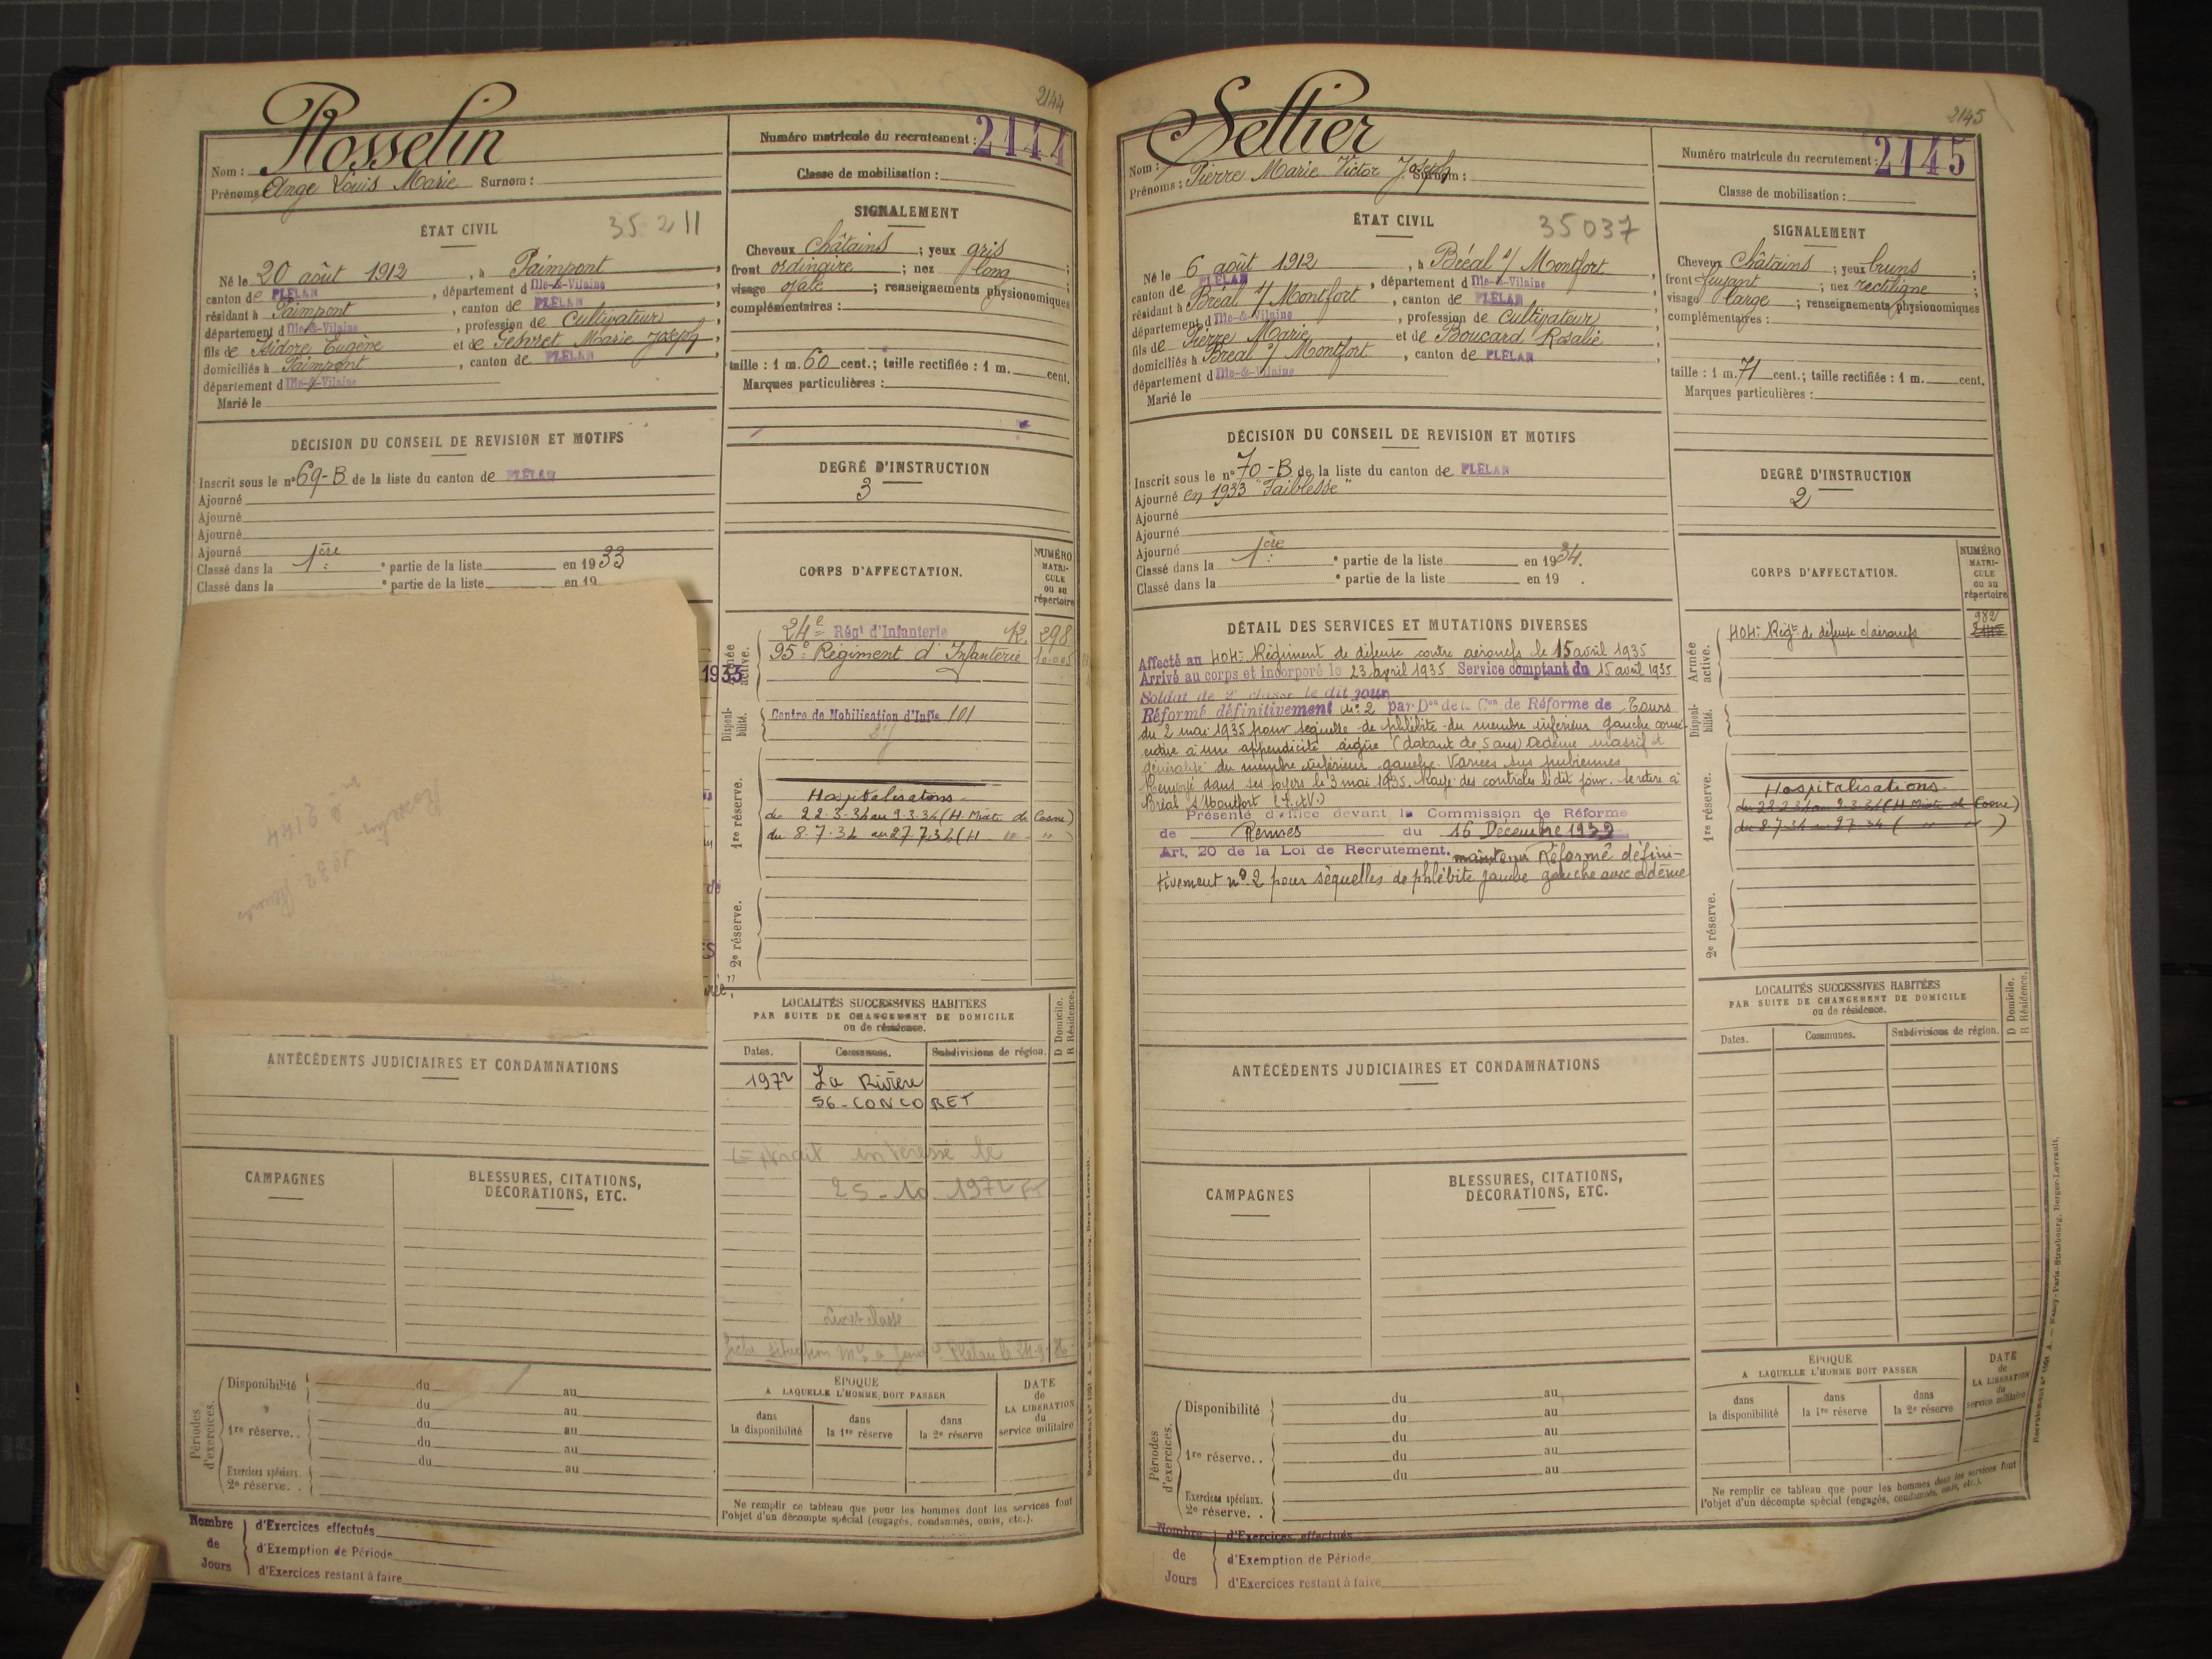 2144
Rosselin
Nom :
Prénoms : Ange Louis Marie Surnom :
Numéro matricule du recrutement : 2144
Classe de mobilisation :
ÉTAT CIVIL
35 211
Né le 20 août 1912, à Paimpont,
canton de PLÉLAN, département d Ille-&-Vilaine,
résidant à Paimpont, canton de PLÉLAN,
département d Ille-&-Vilaine, profession de Cultivateur,
fils de Isidore Eugène et de Geh Marie Joseph,
domiciliés à Paimpont, canton de PLÉLAN,
département d Ille-&-Vilaine
Marié le
SIGNALEMENT
Cheveux Châtains ; yeux gris ;
front ordinaire ; nez long ;
visage ovale ; renseignements physionomiques
complémentaires :
taille : 1 m. 60 cent.; taille rectifiée : 1 m. cent.
Marques particulières :
DÉCISION DU CONSEIL DE REVISION ET MOTIFS
Inscrit sous le n° 69-B de la liste du canton de PLÉLAN
Ajourné
Ajourné
Ajourné
Ajourné
Classé dans la 1ère e partie de la liste en 1933
Classé dans la e partie de la liste en 19
DEGRÉ D'INSTRUCTION
3
CORPS D'AFFECTATION.
NUMÉRO MATRICULE ou au répertoire
Armée active.
24e Régt d'Infanterie 298
95e Régiment d'Infanterie
1935
Disponibilité.
Centre de Mobilisation d'Infie 101
1re réserve.
Hospitalisations
du 22-3-34 au 9-3-34 (H. Mixte de Cosne)
du 8-7-34 au 27-7-34 (H " - " )
2e réserve.
Rosselin
n° 2144
1932 Rennes
LOCALITÉS SUCCESSIVES HABITÉES
PAR SUITE DE CHANGEMENT DE DOMICILE
ou de résidence.
D Domicile.
R Résidence.
Dates. Communes. Subdivisions de région.
1972 La Rivière
56-CONCORET
Extrait intéressé le
25-10-1972
Livret classé
ANTÉCÉDENTS JUDICIAIRES ET CONDAMNATIONS
CAMPAGNES
BLESSURES, CITATIONS,
DÉCORATIONS, ETC.
Périodes d'exercices.
Disponibilité du au
du au
1re réserve. . du au
du au
du au
Exercices spéciaux.
2e réserve. .
ÉPOQUE
A LAQUELLE L'HOMME DOIT PASSER
dans la disponibilité
dans la 1re réserve
dans la 2e réserve
DATE de LA LIBÉRATION du service militaire
Ne remplir ce tableau que pour les hommes dont les services font
l'objet d'un décompte spécial (engagés, condamnés, omis, etc.).
Nombre de Jours
d'Exercices effectués
d'Exemption de Période
d'Exercices restant à faire
2145
Sellier
Nom :
Prénoms : Pierre Marie Victor Joseph Surnom :
Numéro matricule du recrutement : 2145
Classe de mobilisation :
ÉTAT CIVIL
35037
Né le 6 août 1912, à Bréal s/ Montfort,
canton de PLÉLAN, département d Ille-&-Vilaine,
résidant à Bréal s/ Montfort, canton de PLÉLAN,
département d Ille-&-Vilaine, profession de Cultivateur,
fils de Pierre Marie et de Boucard Rosalie,
domiciliés à Bréal s/ Montfort, canton de PLÉLAN,
département d Ille-&-Vilaine
Marié le
SIGNALEMENT
Cheveux Châtains ; yeux bruns ;
front fuyant ; nez rectiligne ;
visage large ; renseignements physionomiques
complémentaires :
taille : 1 m. 71 cent.; taille rectifiée : 1 m. cent.
Marques particulières :
DÉCISION DU CONSEIL DE REVISION ET MOTIFS
Inscrit sous le n° 70-B de la liste du canton de PLÉLAN
Ajourné en 1933 "Faiblesse"
Ajourné
Ajourné
Ajourné
Classé dans la 1ère e partie de la liste en 1934.
Classé dans la e partie de la liste en 19 .
DEGRÉ D'INSTRUCTION
2
DÉTAIL DES SERVICES ET MUTATIONS DIVERSES
Affecté au 404e Régiment de défense contre aéronefs le 15 avril 1935
Arrivé au corps et incorporé le 23 avril 1935 Service comptant du 15 avril 1935
Soldat de 2e classe le dit jour
Réformé définitivement n° 2 par Don de la Con de Réforme de Tours
du 2 mai 1935 pour séquelle de phlébite du membre inférieur gauche consé-
cutive à une appendicite aigüe (datant de 5 ans) Œdème massif et
généralisé du membre inférieur gauche. Varices sus pubiennes
Renvoyé dans ses foyers le 3 mai 1935. Rayé des contrôles le dit jour. Se retire à
Bréal s/Montfort (I.&V.)
Présenté d'office devant la Commission de Réforme
de Rennes du 16 Décembre 1939
Art. 20 de la Loi de Recrutement. maintenu Réformé défini-
tivement n° 2 pour séquelles de phlébite jambe gauche avec œdème
CORPS D'AFFECTATION.
NUMÉRO MATRICULE ou au répertoire
Armée active.
404e Regt de défense c/aéronefs 982
Disponibilité.
1re réserve.
Hospitalisations
du 22-3-34 au 9-3-34 (H Mixte de Cosne)
du 8-7-34 au 27-34 ( " " )
2e réserve.
LOCALITÉS SUCCESSIVES HABITÉES
PAR SUITE DE CHANGEMENT DE DOMICILE
ou de résidence.
D Domicile.
R Résidence.
Dates. Communes. Subdivisions de région.
ANTÉCÉDENTS JUDICIAIRES ET CONDAMNATIONS
CAMPAGNES
BLESSURES, CITATIONS,
DÉCORATIONS, ETC.
Périodes d'exercices.
Disponibilité du au
du au
1re réserve. . du au
du au
du au
Exercices spéciaux.
2e réserve. .
ÉPOQUE
A LAQUELLE L'HOMME DOIT PASSER
dans la disponibilité
dans la 1re réserve
dans la 2e réserve
DATE de LA LIBÉRATION du service militaire
Ne remplir ce tableau que pour les hommes dont les services font
l'objet d'un décompte spécial (engagés, condamnés, omis, etc.).
Nombre de Jours
d'Exercices effectués
d'Exemption de Période
d'Exercices restant à faire